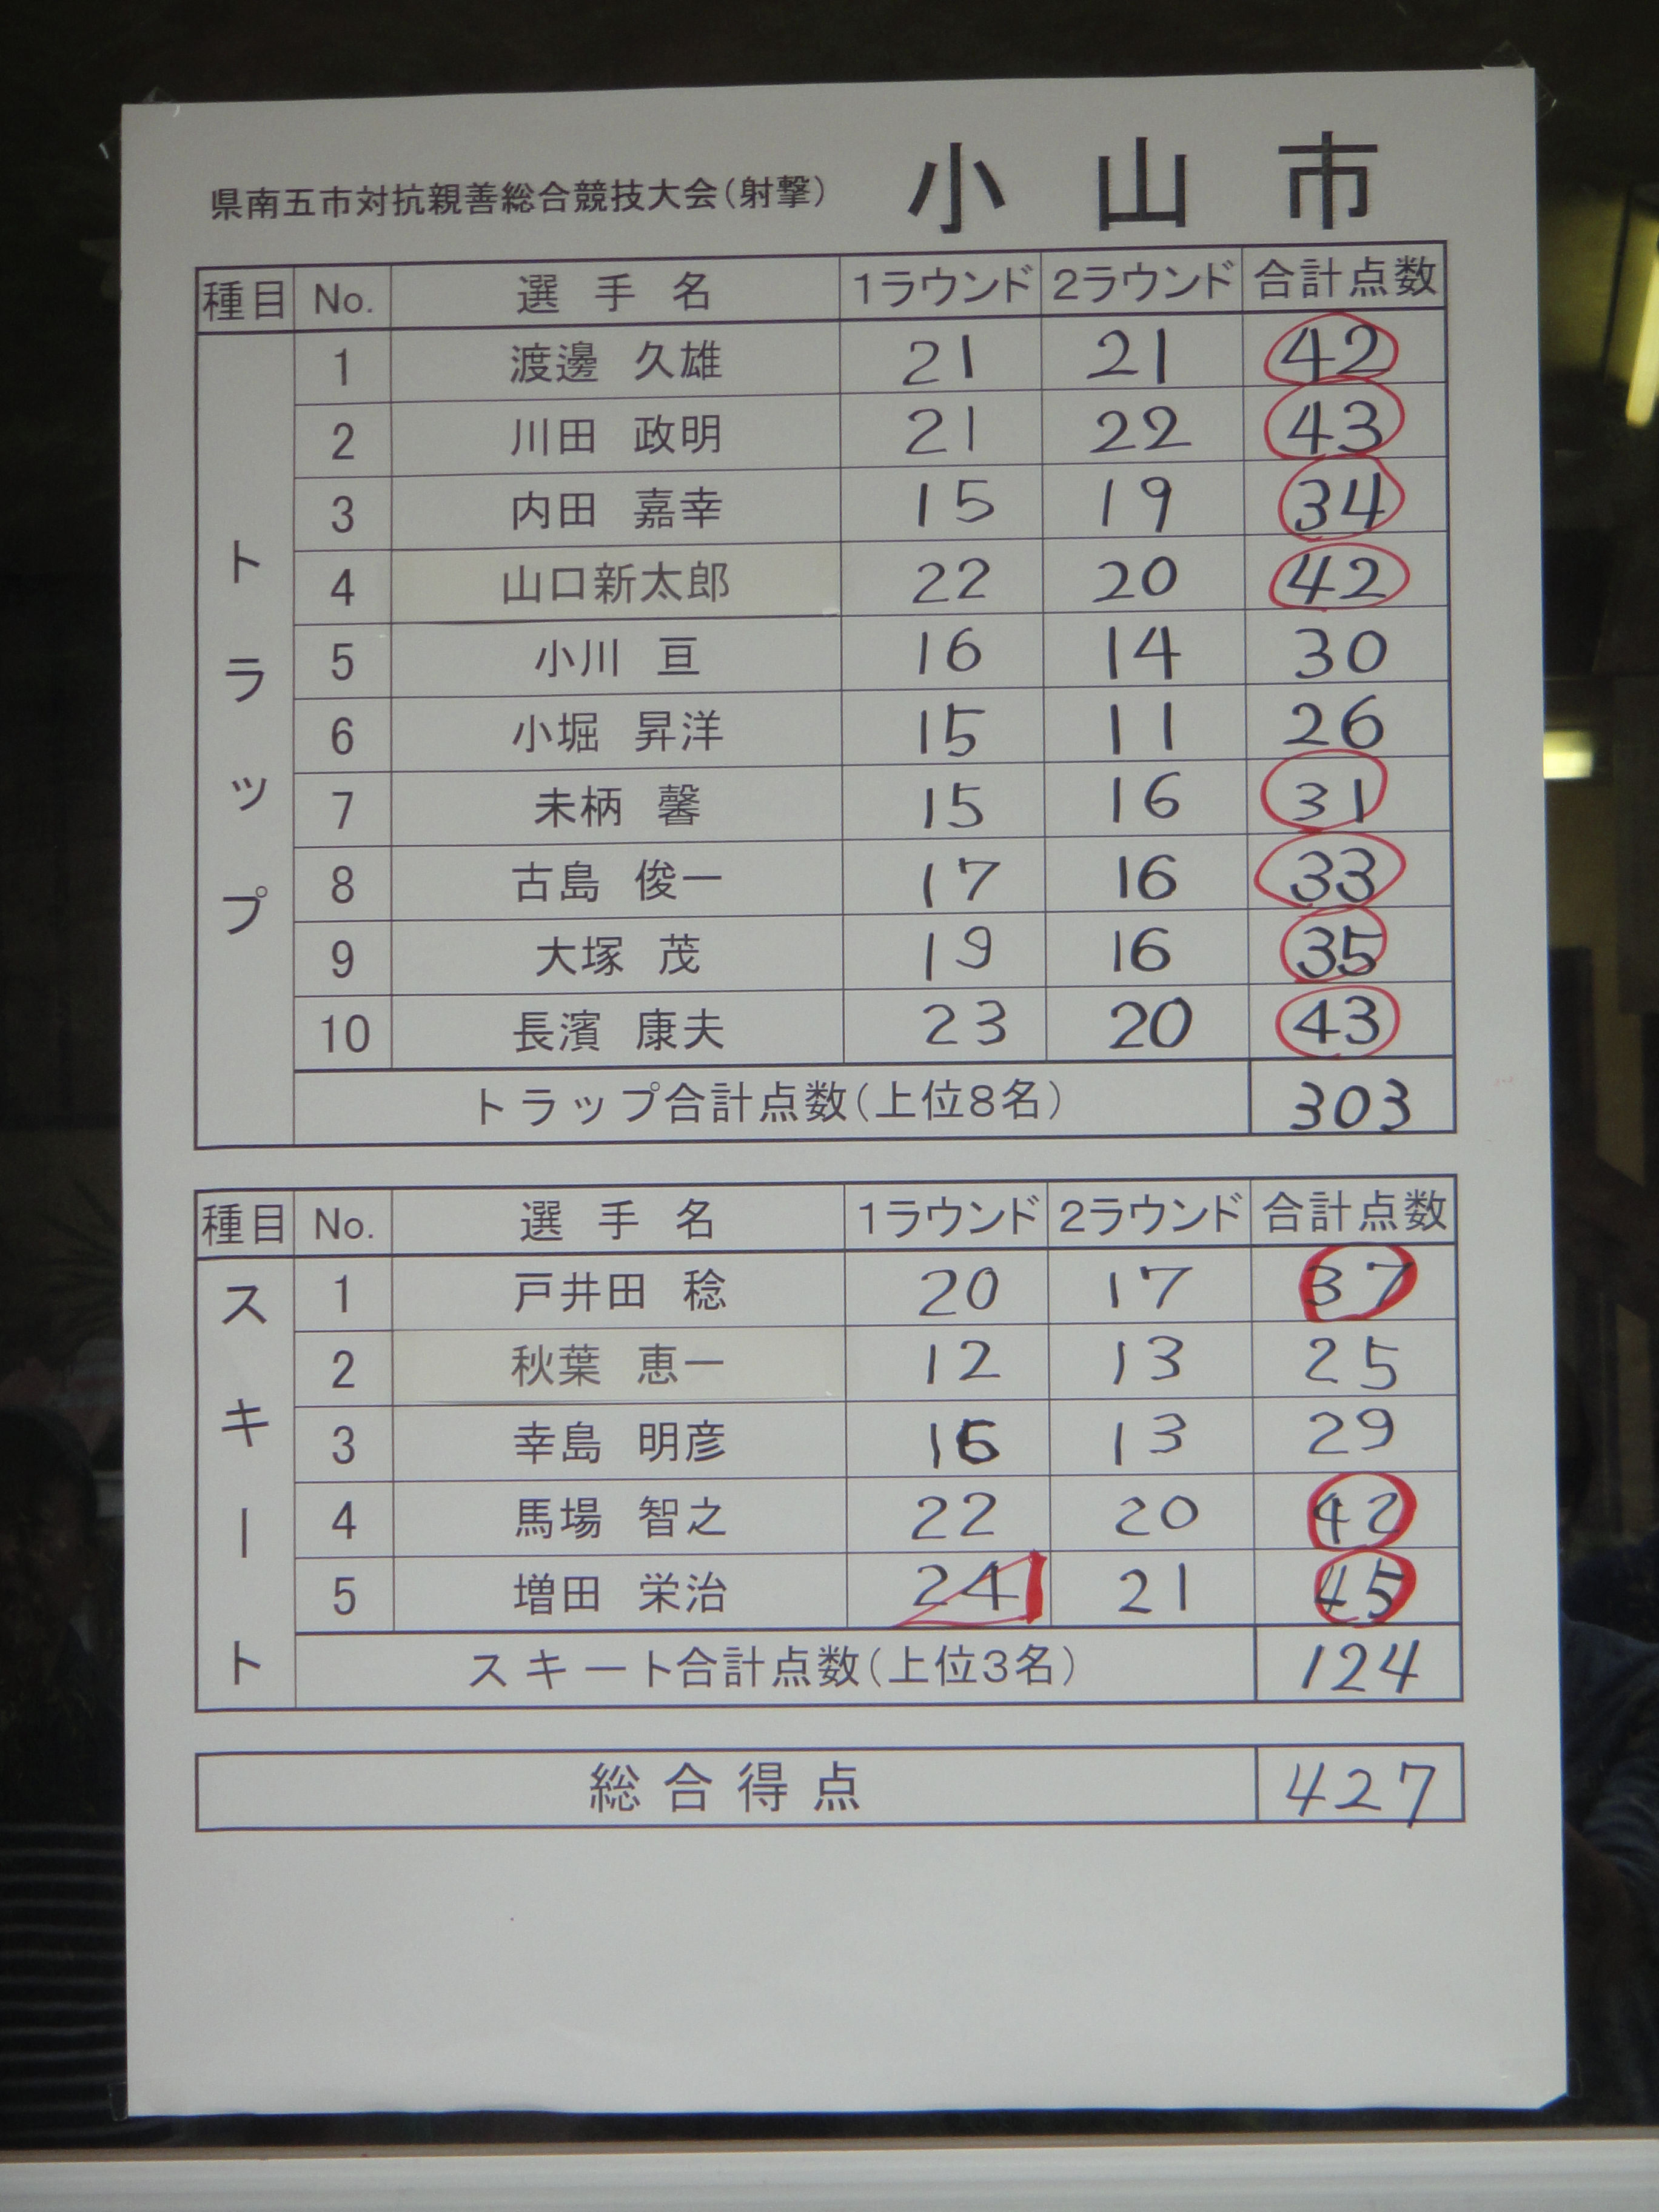 県南五市対抗親善総合競技大会(射撃) 小山市
種目 No. 選手名 1ラウンド 2ラウンド 合計点数
トラップ
1 渡邊 久雄 21 21 42
2 川田 政明 21 22 43
3 内田 嘉幸 15 19 34
4 山口新太郎 22 20 42
5 小川 亘 16 14 30
6 小堀 昇洋 15 11 26
7 未柄 馨 15 16 31
8 古島 俊一 17 16 33
9 大塚 茂 19 16 35
10 長濱 康夫 23 20 43
トラップ合計点数(上位8名) 303
種目 No. 選手名 1ラウンド 2ラウンド 合計点数
スキート
1 戸井田 稔 20 17 37
2 秋葉 恵一 12 13 25
3 幸島 明彦 16 13 29
4 馬場 智之 22 20 42
5 増田 栄治 24 21 45
スキート合計点数(上位3名) 124
総合得点 427